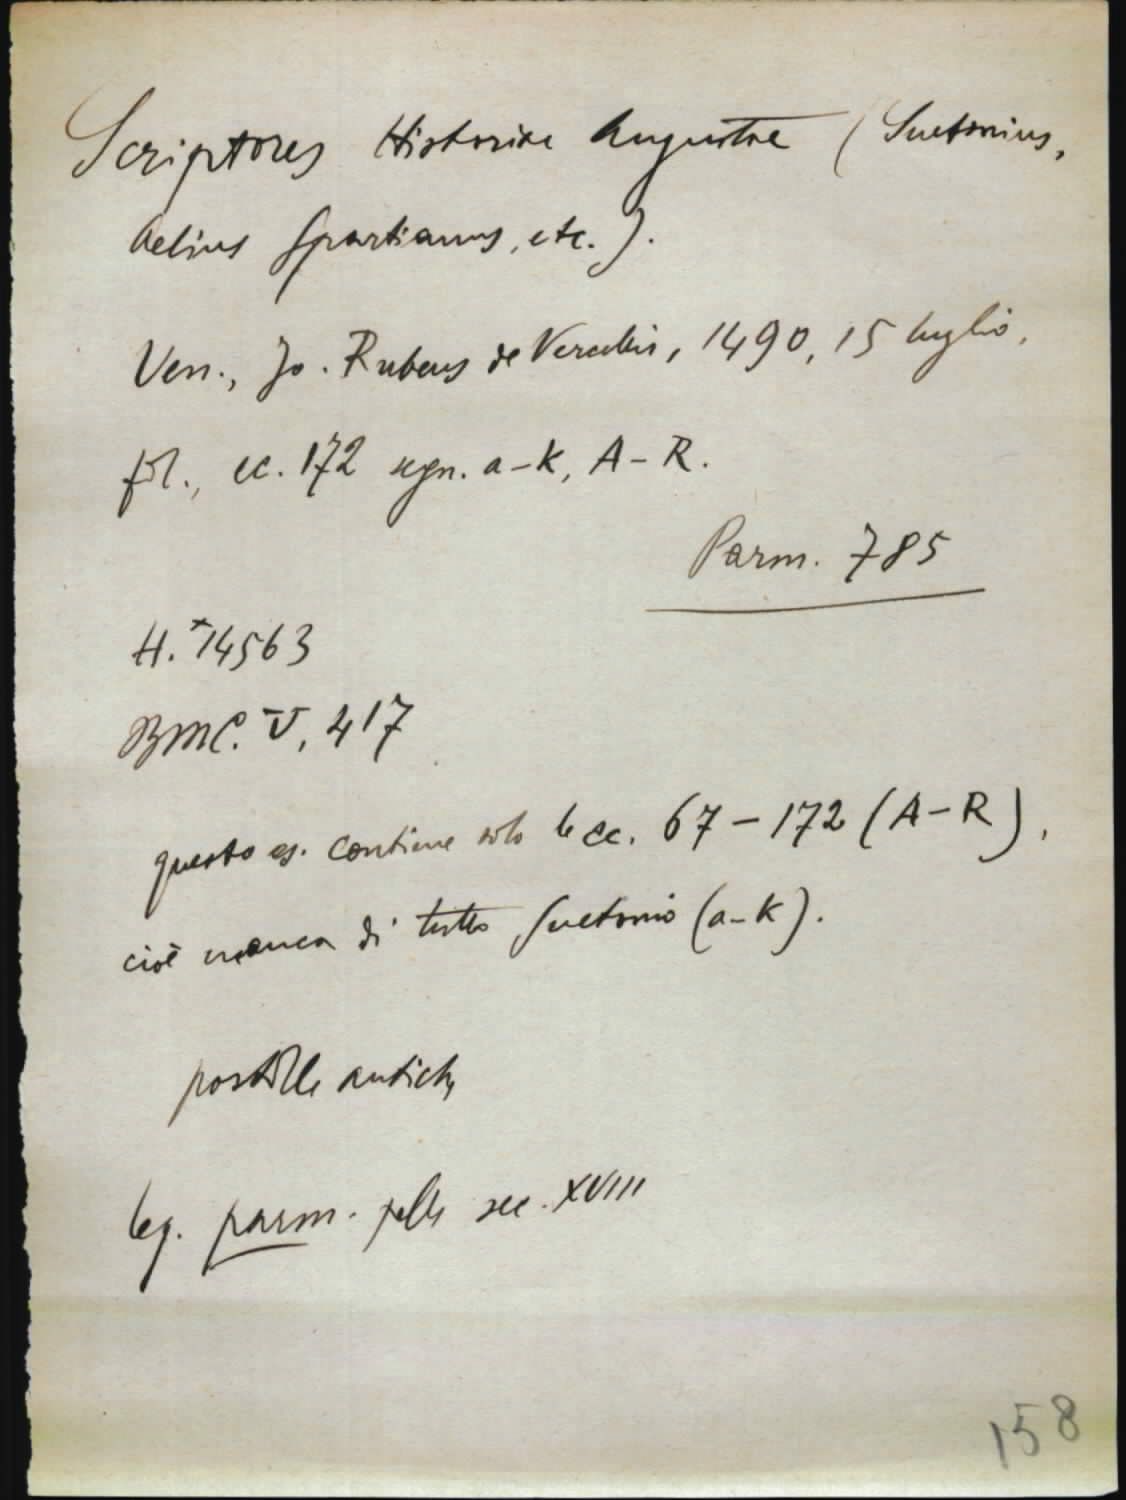 Scriptores Historiae Augustae (Suetonius,
Aelius Spartianus, etc.).
Ven., Jo. Rubeus de Vercellis, 1490, 15 luglio,
fol., cc. 172 segn. a-k, A-R.
Parm. 785
H.*14563
BMC. V, 417
questo es. contiene solo le cc. 67-172 (A-R),
cioè manca di tutto Suetonio (a-k).
postille antiche
leg. parm. pelle sec. XVIII
158